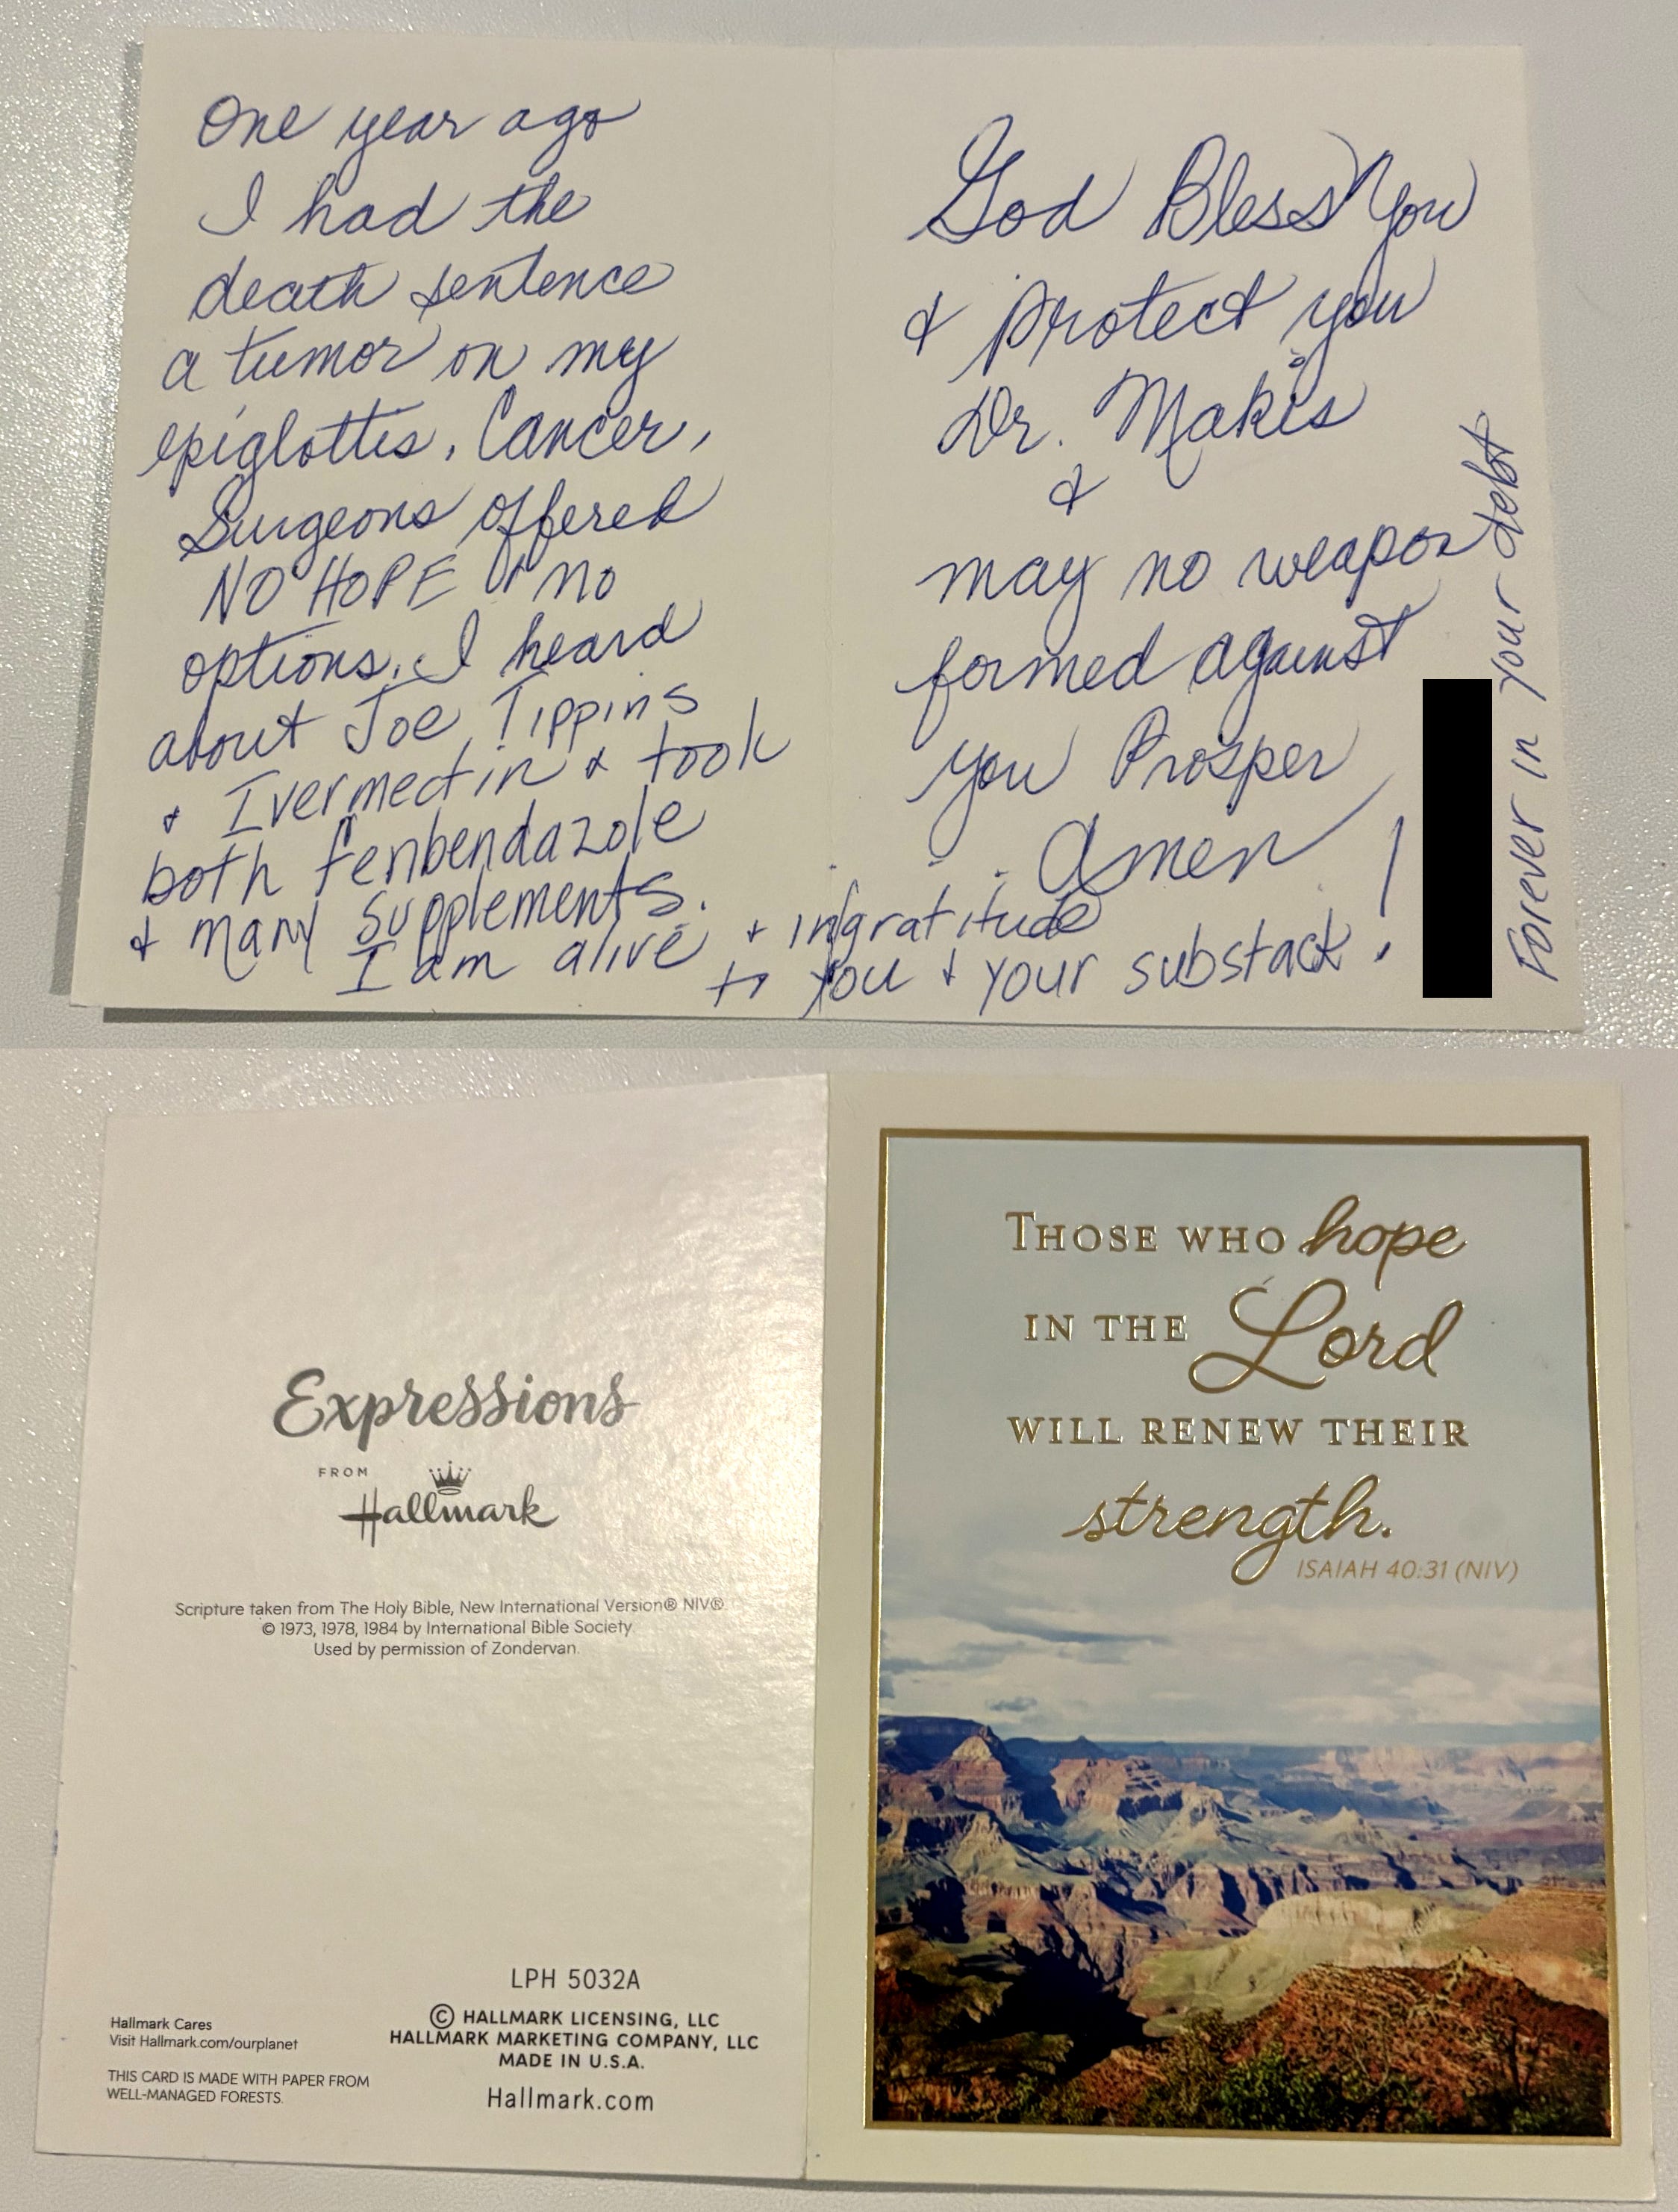 One year ago
I had the
death sentence
a tumor on my
epiglottis. Cancer,
Surgeons offered
NO HOPE or no
options. I heard
about Joe Tippins
& Ivermectin & took
both fenbendazole
& many supplements.
I am alive & in gratitude
to you & your substack!
God Bless You
& protect you
Dr. Makis
&
may no weapon
formed against
you Prosper
Amen!
Forever in your debt
Expressions
FROM
Hallmark
Scripture taken from The Holy Bible, New International Version® NIV®.
© 1973, 1978, 1984 by International Bible Society
Used by permission of Zondervan.
LPH 5032A
© HALLMARK LICENSING, LLC
HALLMARK MARKETING COMPANY, LLC
MADE IN U.S.A.
Hallmark.com
Hallmark Cares
Visit Hallmark.com/ourplanet
THIS CARD IS MADE WITH PAPER FROM
WELL-MANAGED FORESTS.
THOSE WHO hope
IN THE Lord
WILL RENEW THEIR
strength.
ISAIAH 40:31 (NIV)